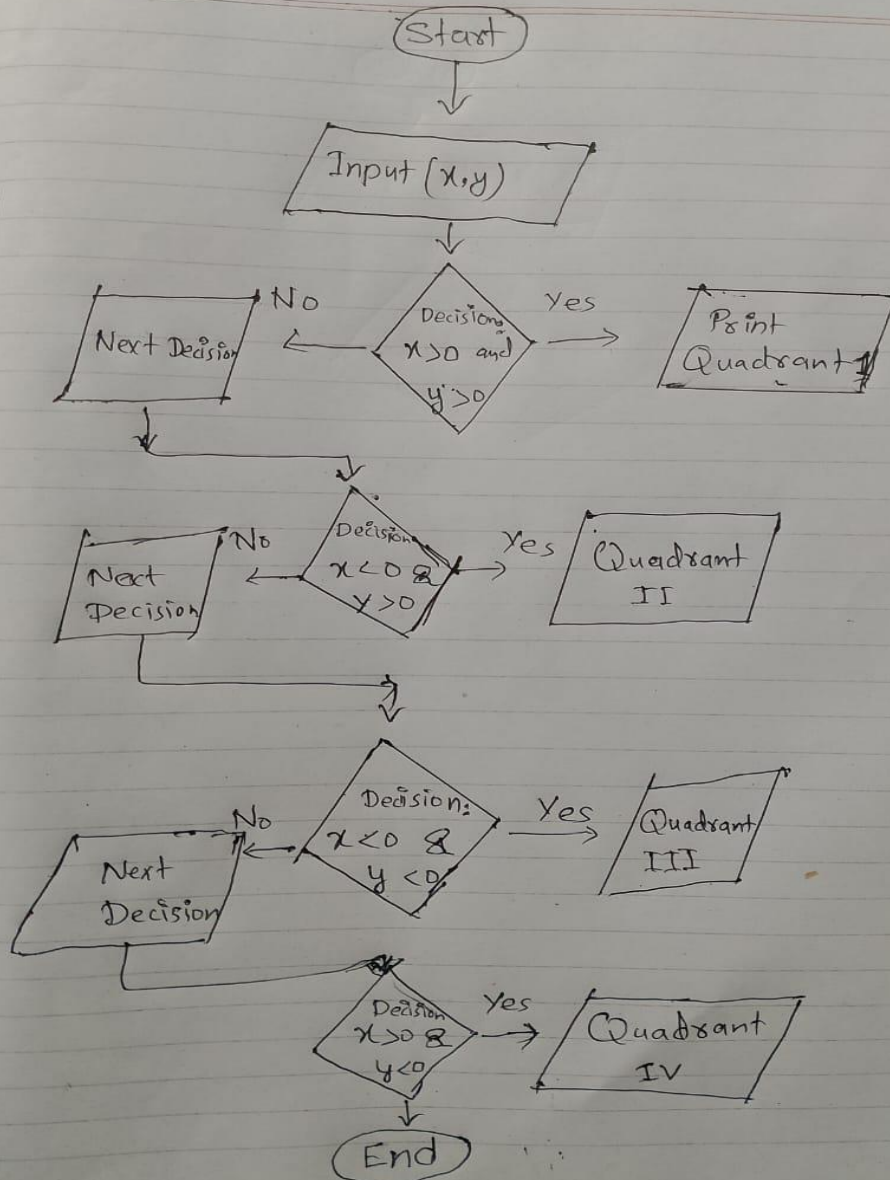 Start
Input (x,y)
No
Yes
Next Decision
Decision:
x>0 and
y>0
Print
Quadrant I
No
Yes
Next
Decision
Decision
x<0 &
y>0
Quadrant
II
No
Yes
Next
Decision
Decision:
x<0 &
y<0
Quadrant
III
Decision
x>0 &
y<0
Yes
Quadrant
IV
End